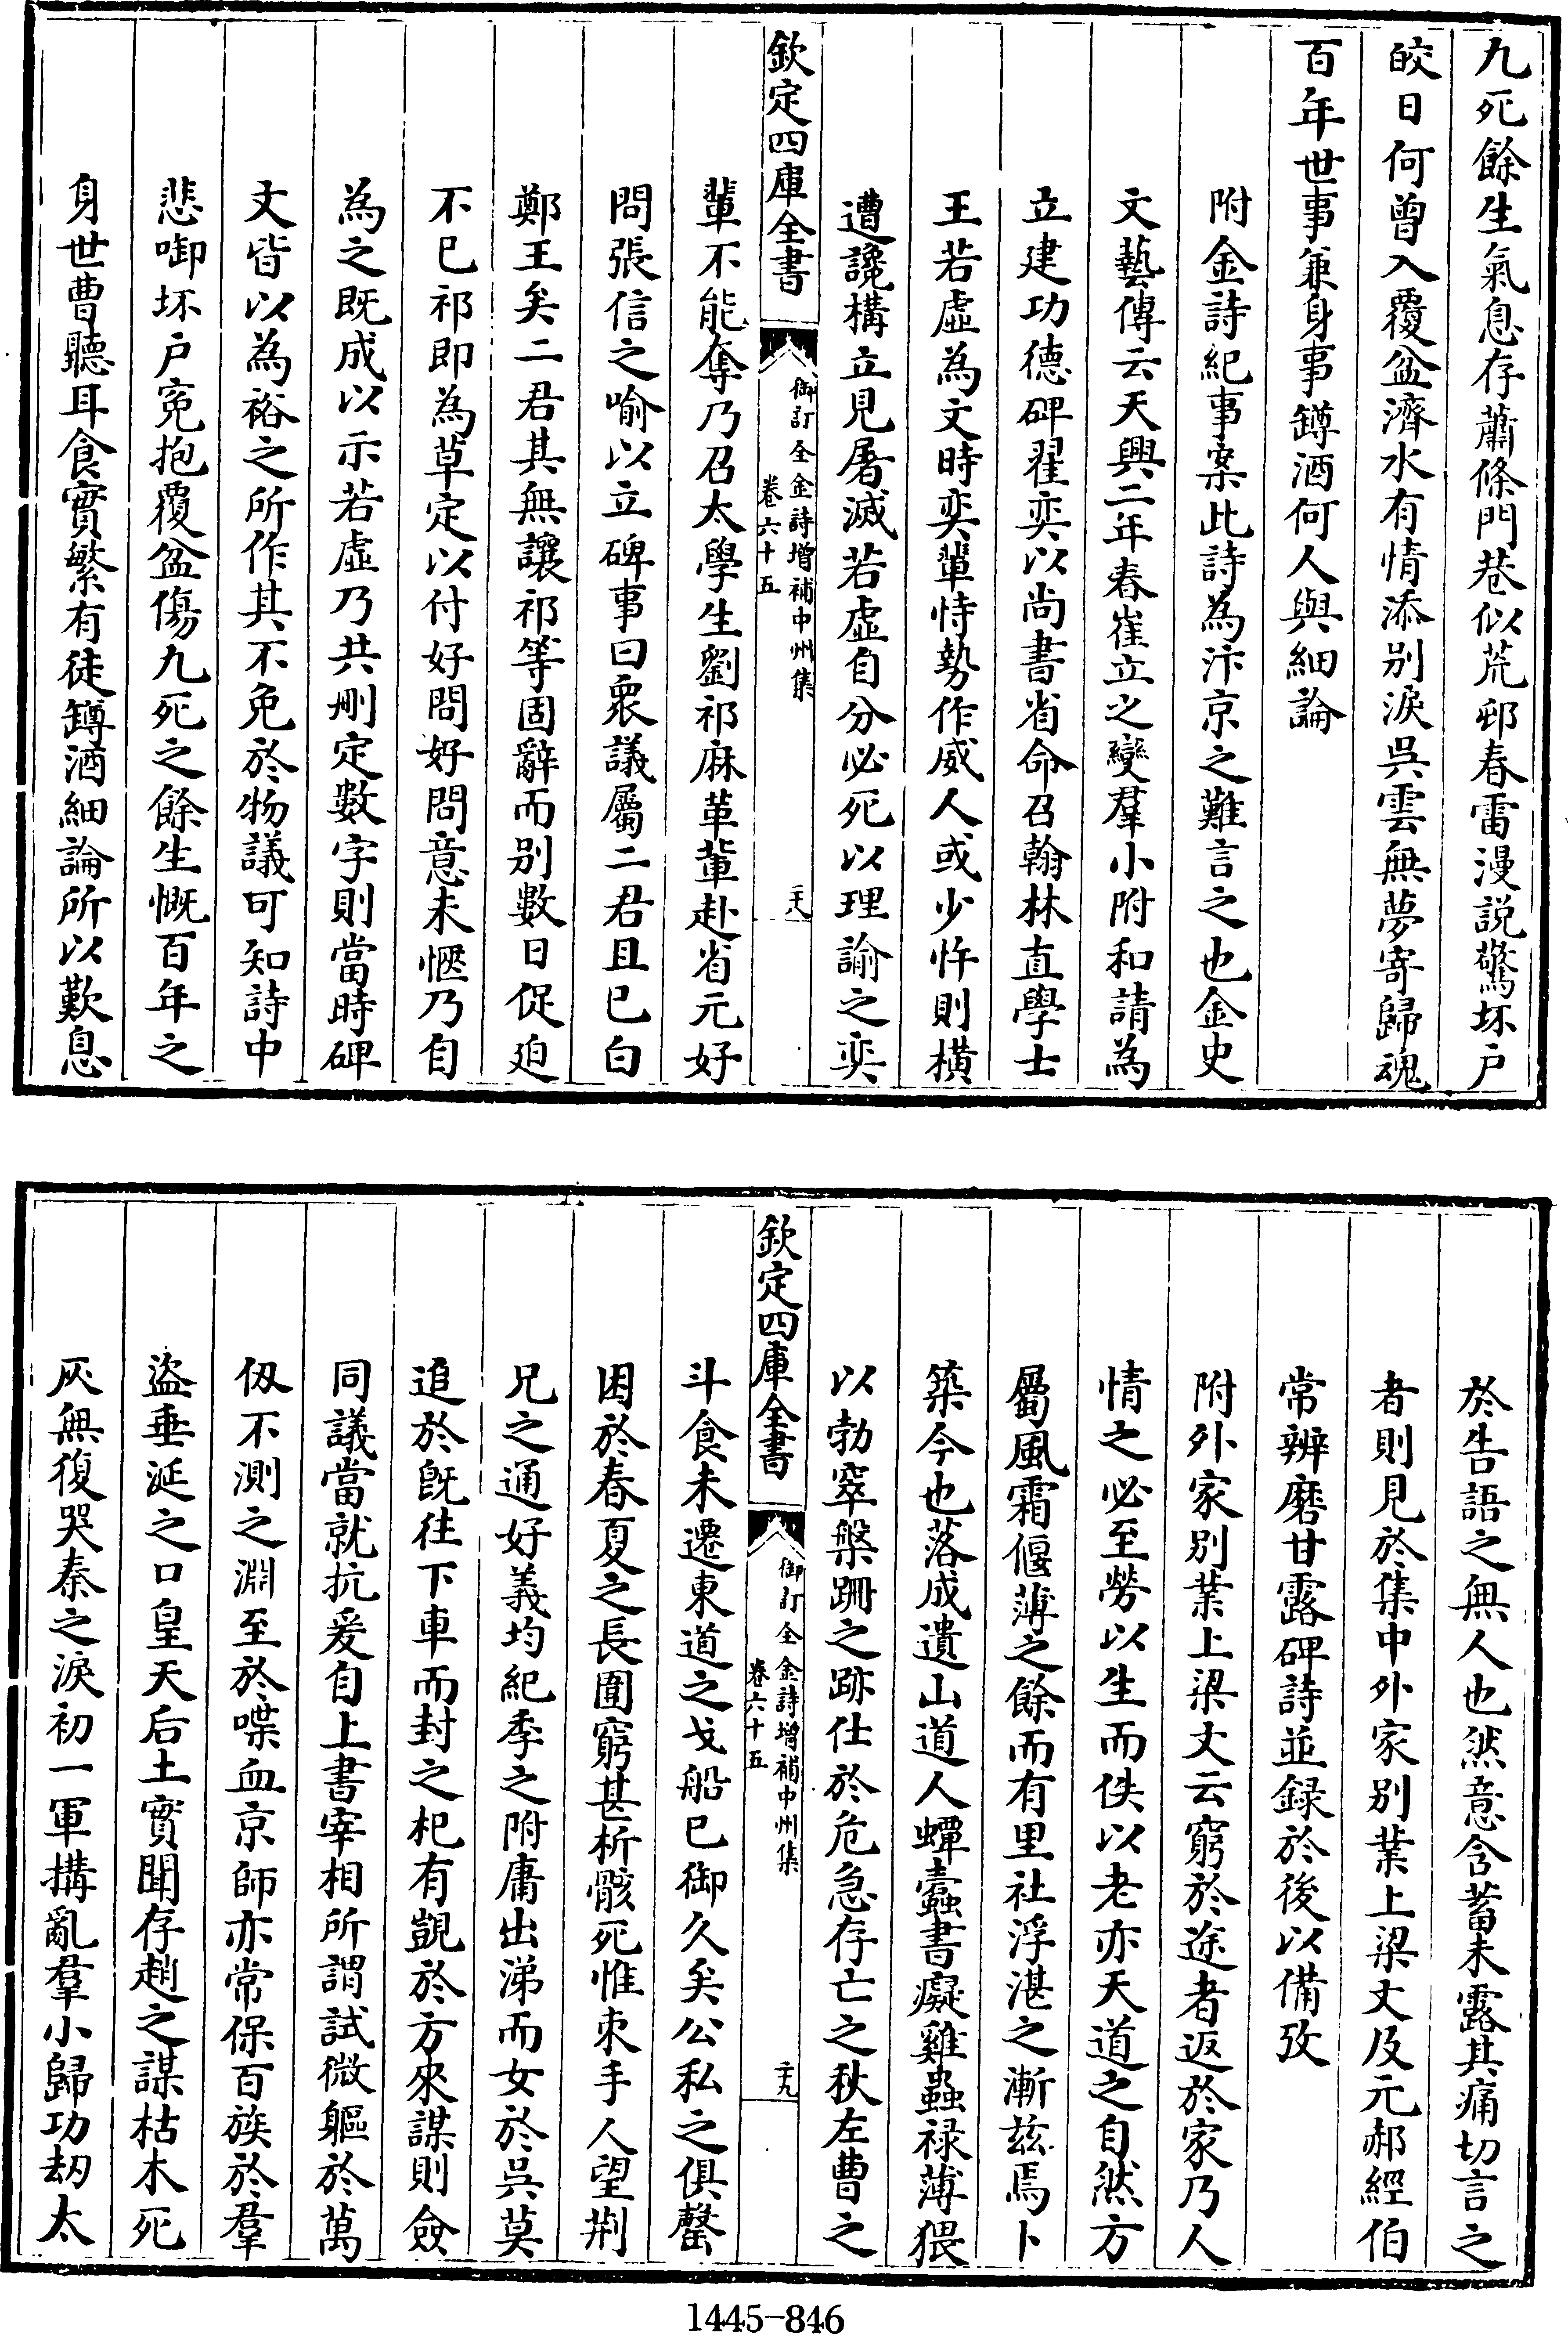 九死餘生氣息存蕭條門巷似荒邨春雷漫説驚坏户
皎日何曽入覆盆濟水有情添别淚吳雲無夢寄歸魂
百年世事兼身事罇酒何人與細論
附金詩紀事案此詩為汴京之難言之也金史
文藝傳云天興二年春崔立之變羣小附和請為
立建功德碑翟奕以尚書省命召翰林直學士
王若虛為文時奕輩恃勢作威人或少忤則横
遭讒構立見屠滅若虛自分必死以理諭之奕
欽定四庫全書
御訂全金詩增補中州集
卷六十五
二十八
輩不能奪乃召太學生劉祁麻革軰赴省元好
問張信之喻以立碑事曰衆議屬二君且已白
鄭王矣二君其無讓祁等固辭而别數日促廹
不已祁即為草定以付好問好問意未愜乃自
為之既成以示若虛乃共刪定數字則當時碑
文皆以為裕之所作其不免於物議可知詩中
悲啣坏户寃抱覆盆傷九死之餘生慨百年之
身世曹聽耳食實繁有徒罇酒細論所以歎息
於告語之無人也然意含蓄未露其痛切言之
者則見於集中外家别業上梁文及元郝經伯
常辨磨甘露碑詩並録於後以備攷
附外家别業上梁文云窮於途者返於家乃人
情之必至勞以生而佚以老亦天道之自然方
屬風霜偃薄之餘而有里社浮湛之漸兹焉卜
築今也落成遺山道人蟫蠹書癡雞蟲禄薄猥
以勃窣槃跚之跡仕於危急存亡之秋左曹之
欽定四庫全書
御訂全金詩增補中州集
卷六十五
二十九
斗食未遷東道之戈船已御久矣公私之俱罄
困於春夏之長圍窮甚析骸死惟束手人望荆
兄之通好義均紀季之附庸出涕而女於吳莫
追於旣往下車而封之杞有覬於方來謀則僉
同議當就抗爰自上書宰相所謂試微軀於萬
仭不測之淵至於喋血京師亦常保百族於羣
盜垂涎之口皇天后土實聞存趙之謀枯木死
灰無復哭秦之淚初一軍搆亂羣小歸功刼太
1445-846